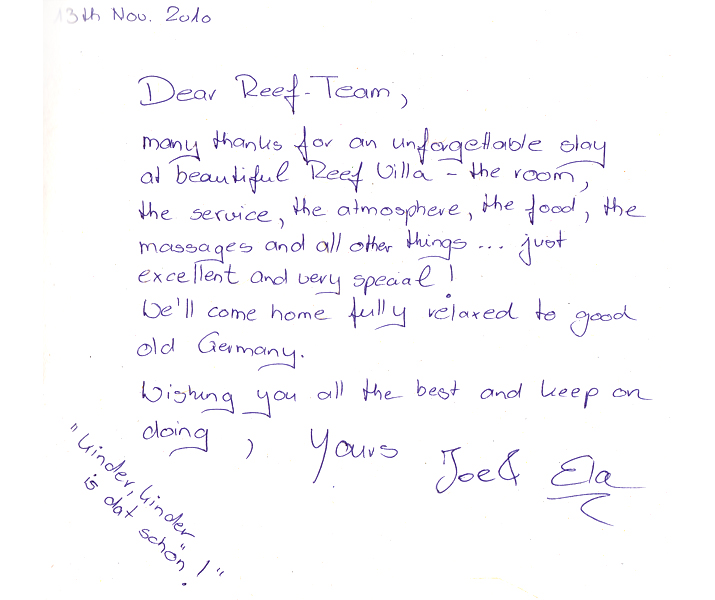 13th Nov. 2010
Dear Reef-Team,
many thanks for an unforgettable stay
at beautiful Reef Villa - the room,
the service, the atmosphere, the food, the
massages and all other things ... just
excellent and very special!
We'll come home fully relaxed to good
old Germany.
Wishing you all the best and keep on
doing, Yours Joe & Ela
"Kinder, Kinder
is dat schön!"